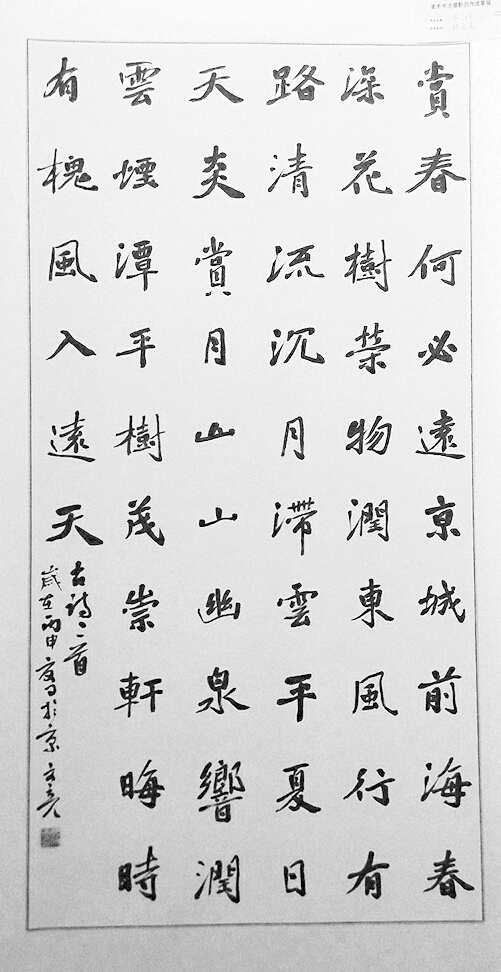 賞春何必遠京城前海春
深花樹榮物潤東風行有
路清流沉月滯雲平夏日
天炎賞月山山幽泉響潤
雲煙潭平樹茂崇軒晦時
有槐風入遠天
古詩二首
歲在丙申夏日於京